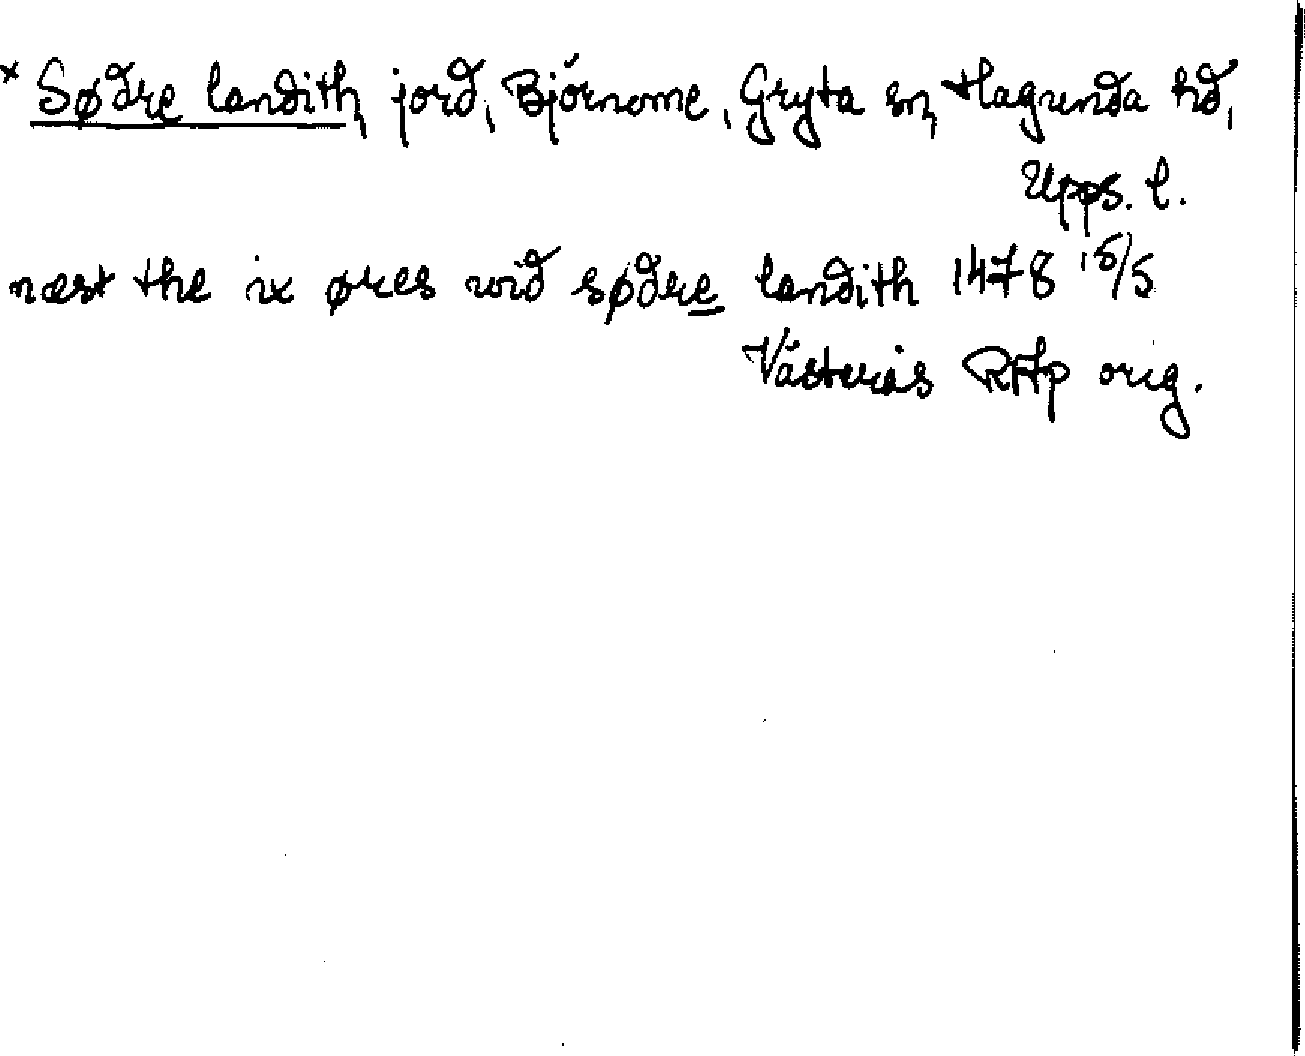 × Sødre landith, jord, Björnome, Gryta sn, Hagunda hd,
Upps. l.
næst the ix øres wid sødre landith 1478 15/5
Västerås RAp orig.